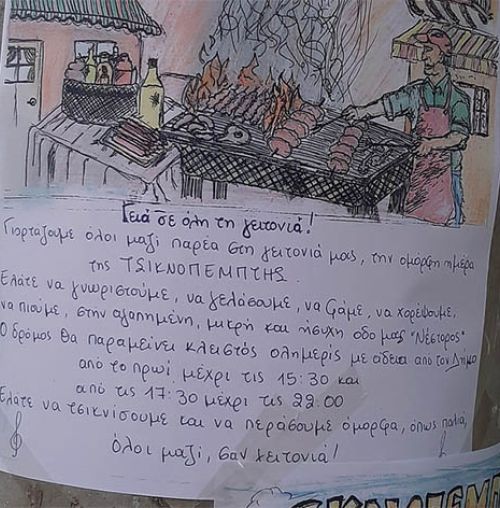 Γειά σε όλη τη γειτονιά!
Γιορτάζουμε όλοι μαζί παρέα στη γειτονιά μας, την όμορφη ημέρα
της ΤΣΙΚΝΟΠΕΜΠΤΗΣ.
Ελάτε να γνωριστούμε, να γελάσουμε, να φάμε, να χορέψουμε,
να πιούμε, στην αγαπημένη, μικρή και ήσυχη οδό μας "Νέστορος"
Ο δρόμος θα παραμείνει κλειστός ολημερίς με άδεια από τον Δήμο
από το πρωί μέχρι τις 15:30 και
από τις 17:30 μέχρι τις 22.00
Ελάτε να τσικνίσουμε και να περάσουμε όμορφα, όπως παλιά,
όλοι μαζί, σαν γειτονιά!